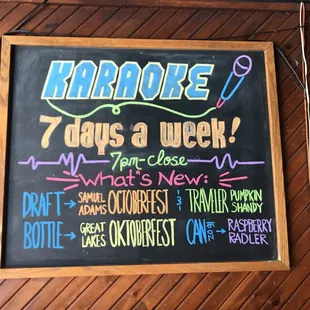 KARAOKE
7 days a week!
7pm-close
What's New:
DRAFT → SAMUEL ADAMS OCTOBERFEST TRAVELER PUMPKIN SHANDY
BOTTLE → GREAT LAKES OKTOBERFEST CAN → RASPBERRY RADLER